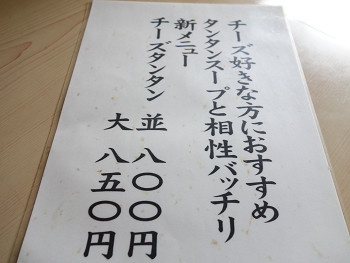 チーズ好きな方におすすめ
タンタンスープと相性バッチリ
新メニュー
チーズタンタン 並 八〇〇円
大 八五〇円